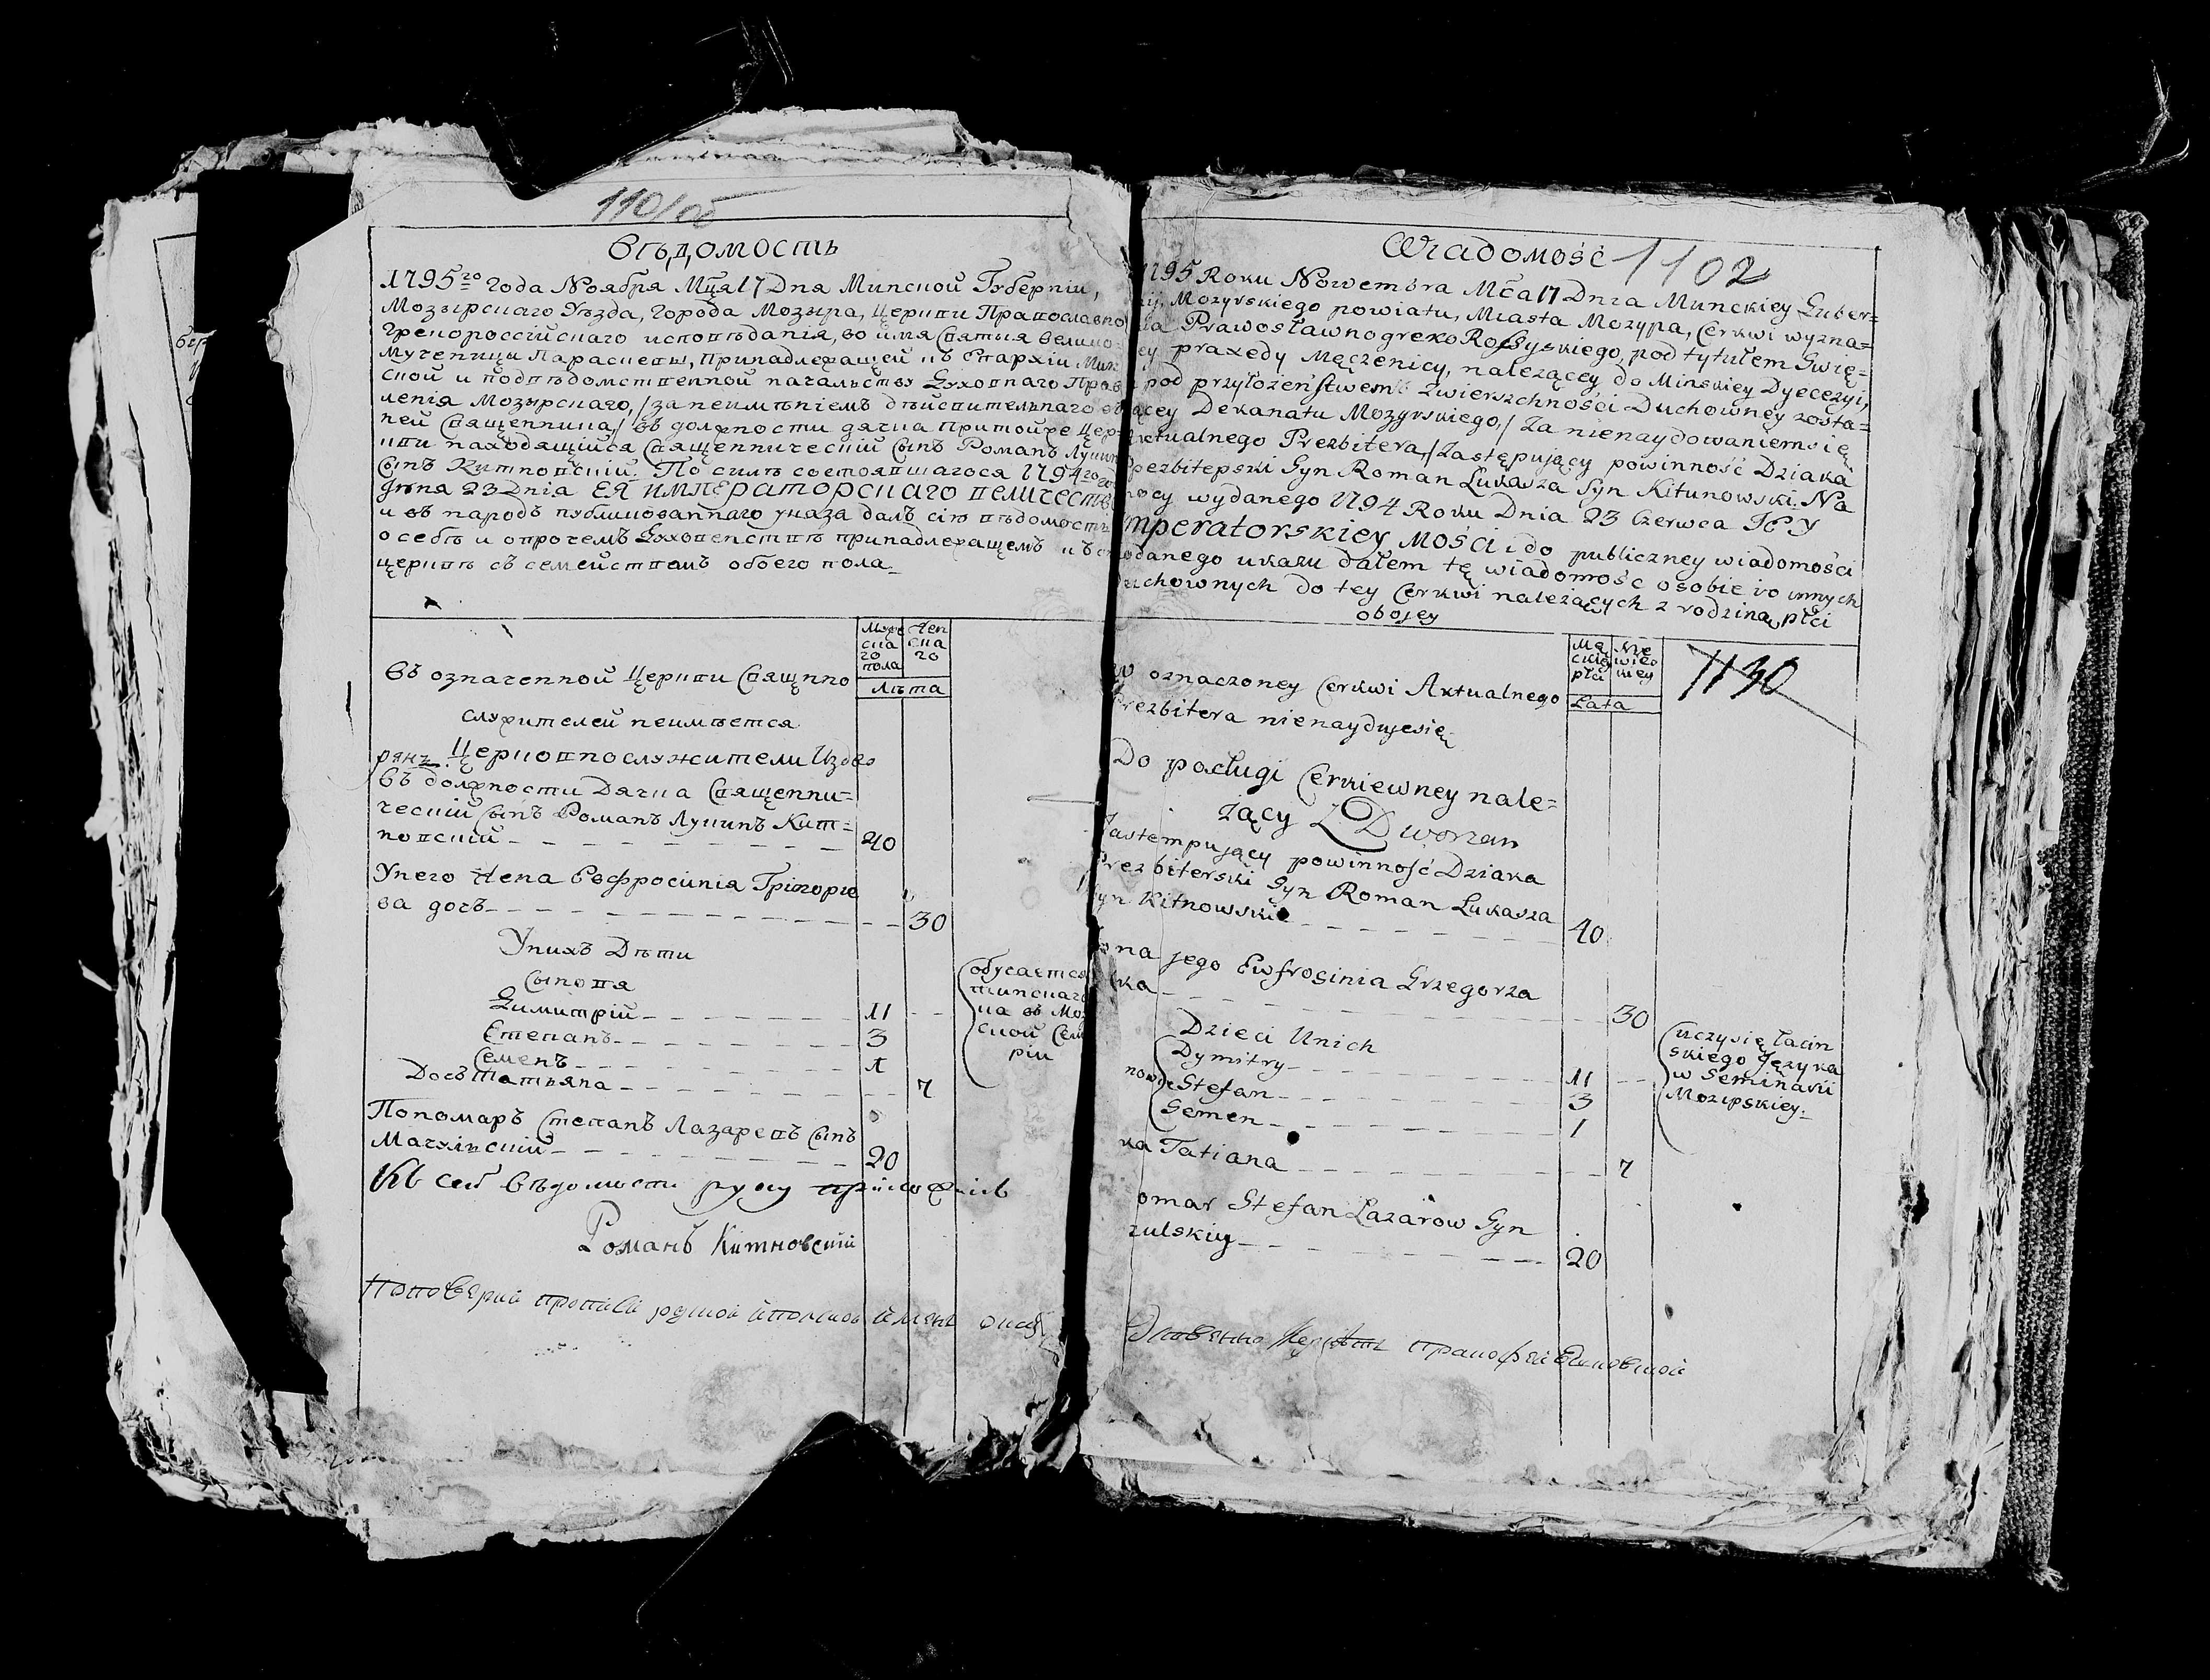 110/об
Вѣдомость
1795го года Ноября Мца 17 Дня Минской Губерніи,
Мозырскаго Уѣзда, города Мозыра, Церкви Православно
Грекороссійскаго исповѣданія, во имя Святыя Велико=
Мученицы Параскевы, Принадлежащей къ Епархіи Мин
ской и подвѣдомственной начальству Духовнаго Прав
ленія Мозырскаго, /за неимѣніемъ дѣйствительнаго
ней Священника,/ въ должности дячка притойже Цер=
кви находящійся Священническій Сынъ Романъ Лукинъ
Сынъ Китновскій. По силѣ состоявшагося 1794го
Іюня 23 Дня ЕЯ ИМПЕРАТОРСКАГО величеств
и въ народъ публикованнаго указа далъ сію вѣдомость
о себѣ и опрочемъ Духовенствѣ принадлежащемъ къ
церквѣ съ семействомъ обоего пола
Муже
ска
го
пола
Жен
ска
го
Лѣта
Въ означенной Церкви Священно
служителей неимѣется
Церковнослужители Издво
рянъ
Въ должности Дячка Священни=
ческій Сынъ Романъ Лукинъ Кит=
новскій 40
Унего Жена Евфросинія Григорье
ва дочь 30
Унихъ Дѣти
Сыновя
Димитрій 11
обучается
тинскаго
ка въ Моз
ской Сем
ріи
Степанъ 3
Семенъ 1
Дочь Татьяна 7
Пономаръ Степанъ Лазаревъ Сынъ
Мачульскій 20
Къ сей вѣдомости руку приложилъ
Романъ Китновскій
Wiadomość 1102
1795 Roku Nowembra Mca 17 Dnia Minckiey Guber=
nij, Mozyrskiego powiatu, Miasta Mozyra, Cerkwi wyzna=
nia Prawosławnogreko Rossyskiego, pod tytułem Swię=
ey praxedy Męczenicy, należącey do Minskiey Dyecezyi,
pod przyłożeństwem Zwierzchności Duchowney zosta=
ącey Dekanatu Mozyrskiego, / Za nienaydowaniemsię
Aktualnego Prezbitera,/ Zastępujący powinność Dziaka
Prezbiterski Syn Roman Łukasza Syn Kitunowski. Na
mocy wydanego 1794 Roku Dnia 23 Czerwca JEY
Imperatorskiey MOŚCI i do publiczney wiadomości
podanego ukazu dałem tę wiadomość osobie i o innych
duchownych do tey Cerkwi należących z rodziną płci
obojey
Mę
skiey
płci
Nie
wies
kiey
Lata
1130
W oznaczoney Cerkwi Aktualnego
Prezbitera nienaydujesię
Do posługi Cerkiewney nale=
żący Z Dworzan
Zastempujący powinność Dziaka
Prezbiterski Syn Roman Łukasza
Syn Kitnowski 40
ona jego Ewfrosinia Grzegorza
ka 30
Dzieci Unich
Dymitry 11
uczysię łacin
skiego Języka
w Seminarii
Mozyrskiey
nowie Stefan 3
Semen 1
ka Tatiana 7
omar Stefan Lazarow Syn
zulskiy 20